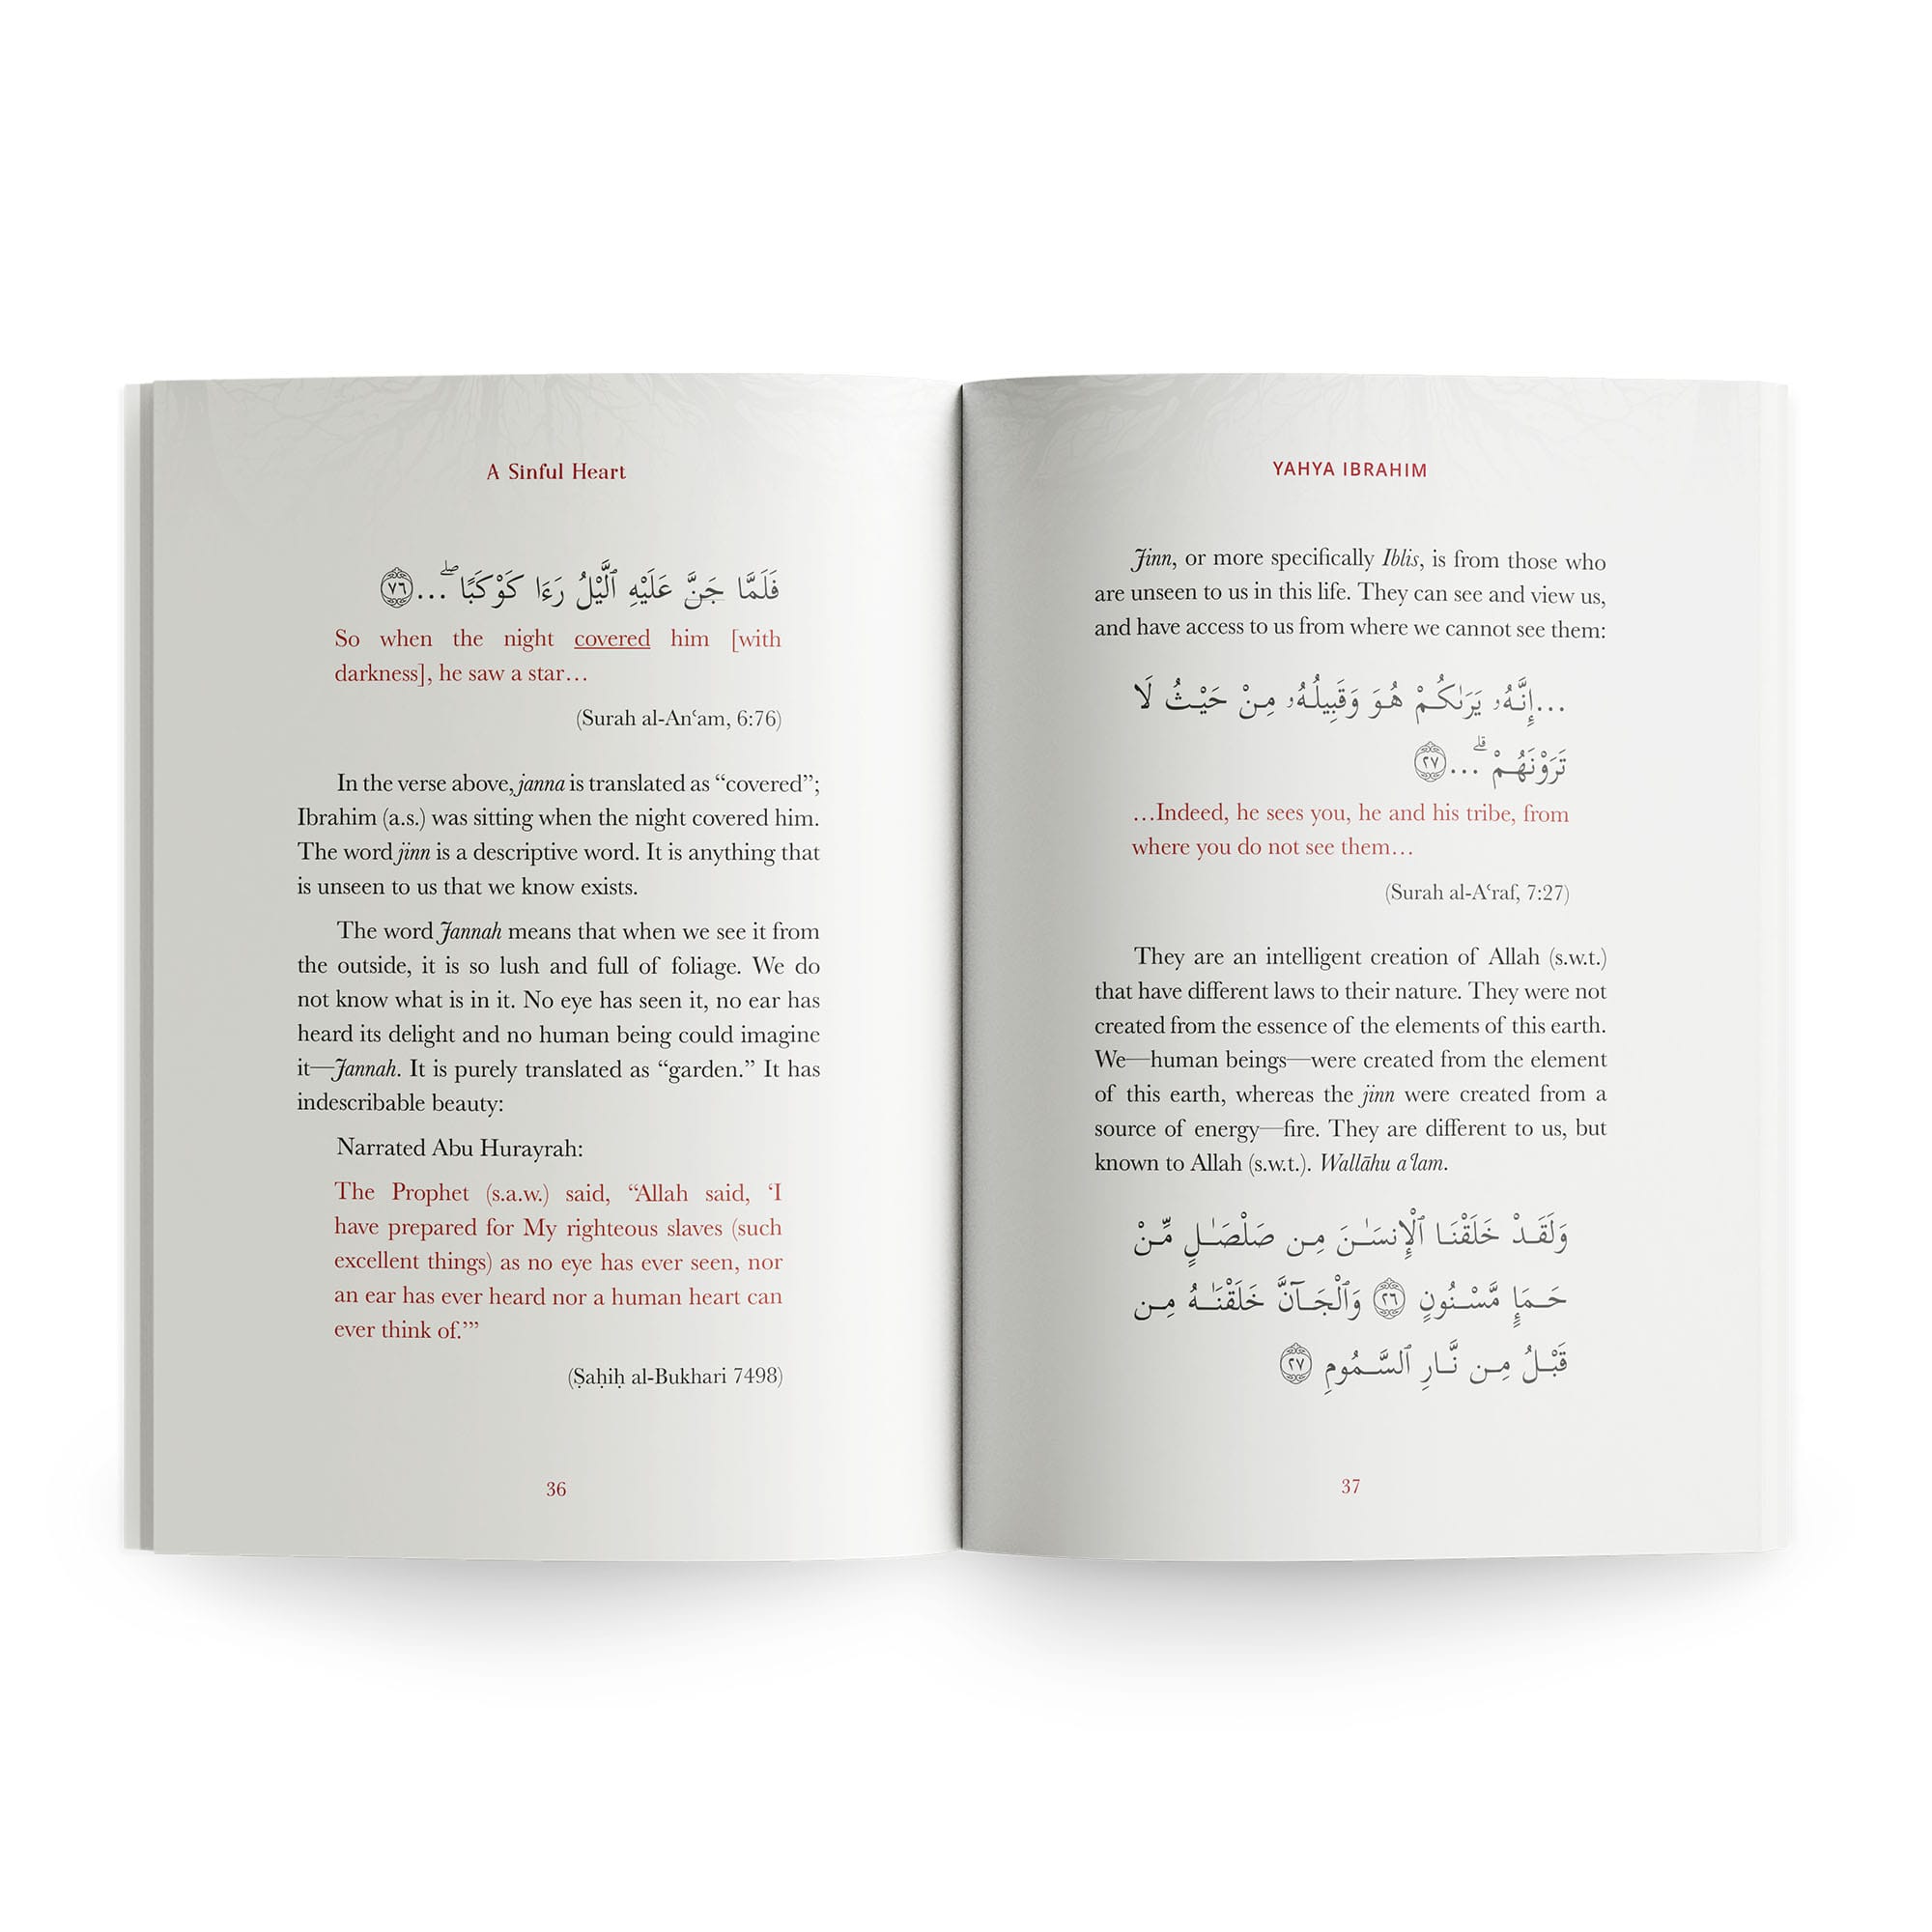 A Sinful Heart
فَلَمَّا جَنَّ عَلَيْهِ ٱلَّيْلُ رَءَا كَوْكَبًا ۖ ... ٧٦
So when the night covered him [with
darkness], he saw a star…
(Surah al-Anʿam, 6:76)
In the verse above, janna is translated as “covered”;
Ibrahim (a.s.) was sitting when the night covered him.
The word jinn is a descriptive word. It is anything that
is unseen to us that we know exists.
The word Jannah means that when we see it from
the outside, it is so lush and full of foliage. We do
not know what is in it. No eye has seen it, no ear has
heard its delight and no human being could imagine
it—Jannah. It is purely translated as “garden.” It has
indescribable beauty:
Narrated Abu Hurayrah:
The Prophet (s.a.w.) said, “Allah said, ‘I
have prepared for My righteous slaves (such
excellent things) as no eye has ever seen, nor
an ear has ever heard nor a human heart can
ever think of.’”
(Ṣaḥiḥ al-Bukhari 7498)
36
YAHYA IBRAHIM
Jinn, or more specifically Iblis, is from those who
are unseen to us in this life. They can see and view us,
and have access to us from where we cannot see them:
...إِنَّهُۥ يَرَىٰكُمْ هُوَ وَقَبِيلُهُۥ مِنْ حَيْثُ لَا
تَرَوْنَهُمْ ۗ ... ٢٧
…Indeed, he sees you, he and his tribe, from
where you do not see them…
(Surah al-Aʿraf, 7:27)
They are an intelligent creation of Allah (s.w.t.)
that have different laws to their nature. They were not
created from the essence of the elements of this earth.
We—human beings—were created from the element
of this earth, whereas the jinn were created from a
source of energy—fire. They are different to us, but
known to Allah (s.w.t.). Wallāhu aʿlam.
وَلَقَدْ خَلَقْنَا ٱلْإِنسَـٰنَ مِن صَلْصَـٰلٍ مِّنْ
حَمَإٍ مَّسْنُونٍ ٢٦ وَٱلْجَآنَّ خَلَقْنَـٰهُ مِن
قَبْلُ مِن نَّارِ ٱلسَّمُومِ ٢٧
37